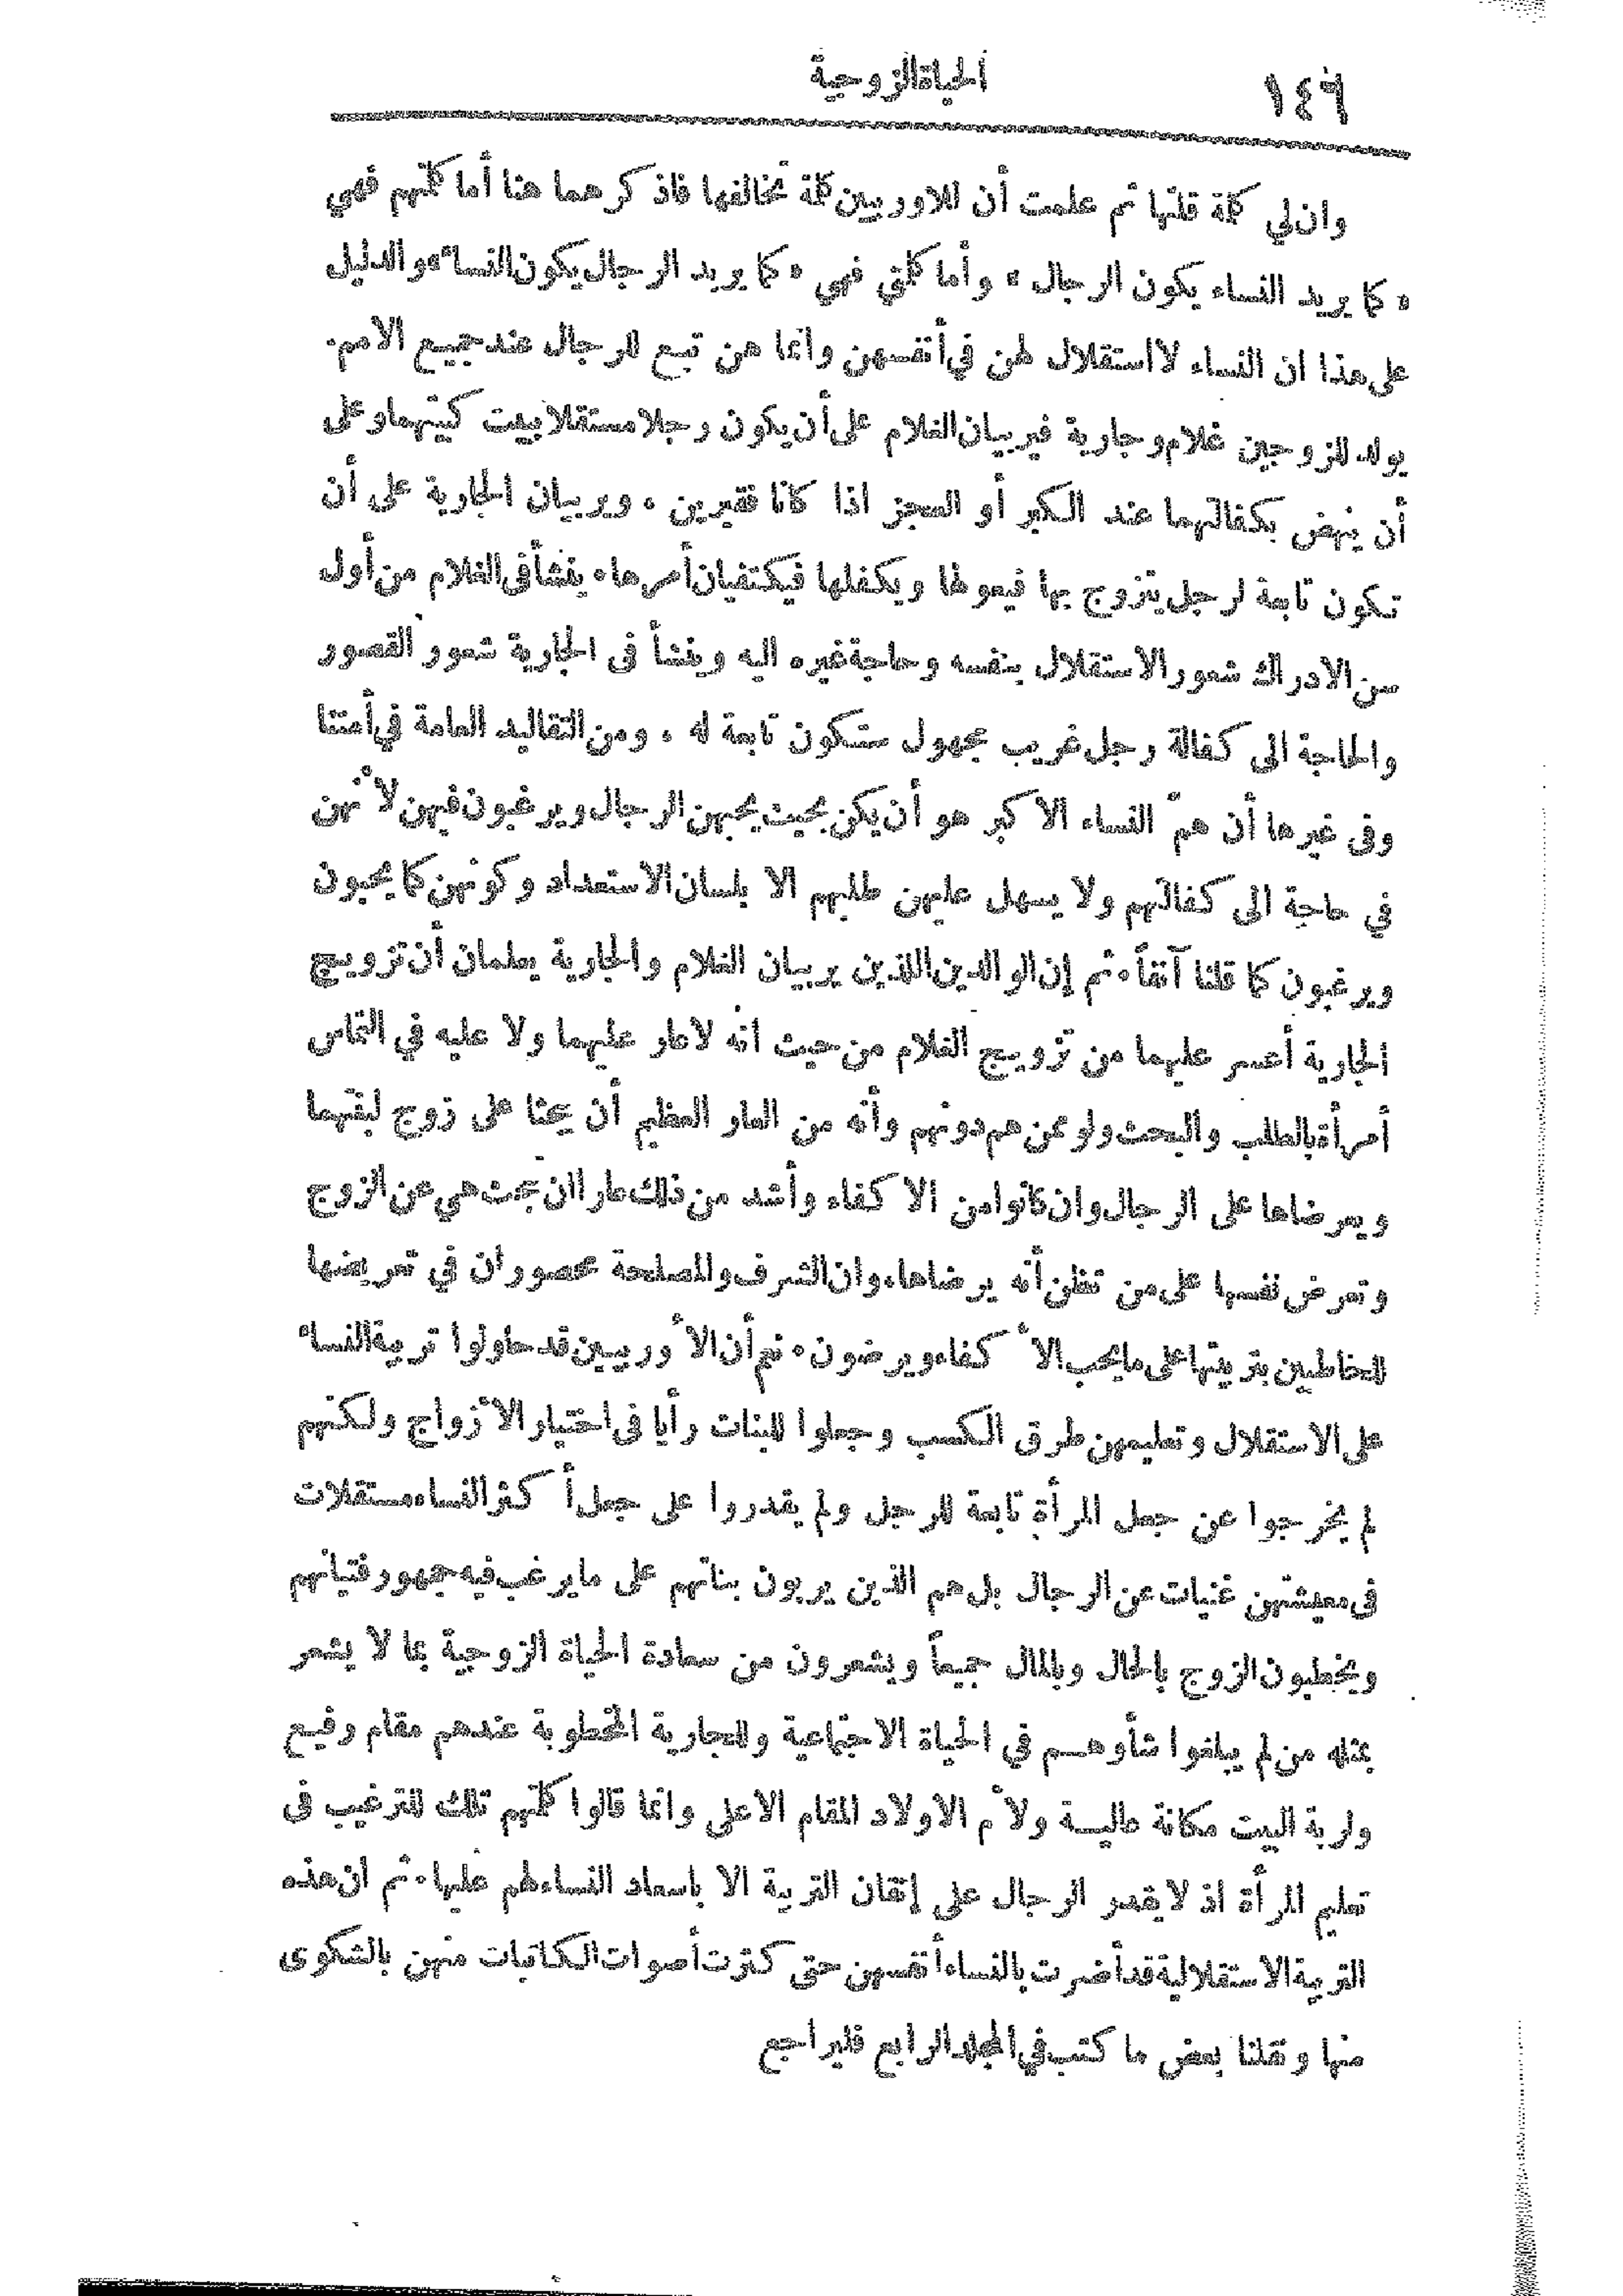 ١٤٦
الحياة الزوجية
وان لي كلمة قلتها ثم علمت أن للاوربيين كلمة تخالفها فاذكرهما هنا أما كلمتهم فهي
« كما يريد النساء يكون الرجال » وأما كلمتي فهي « كما يريد الرجال يكون النساء » والدليل
على هذا ان النساء لا استقلال لهن في أنفسهن وانما هن تبع للرجال عند جميع الامم.
يولد للزوجين غلام وجارية فيربيان الغلام على أن يكون رجلا مستقلا ببيت كبيتهما وعلى
أن ينهض بكفالتهما عند الكبر أو العجز اذا كانا فقيرين . ويربيان الجارية على أن
تكون تابعة لرجل يتزوج بها فيعولها ويكفلها فيكتفيان أمرها . ينشأ فى الغلام من أول
سن الادراك شعور الاستقلال بنفسه وحاجة غيره اليه وينشأ فى الجارية شعور القصور
والحاجة الى كفالة رجل غريب مجهول ستكون تابعة له . ومن التقاليد العامة في أمتنا
وفى غيرها أن همّ النساء الاكبر هو أن يكن بحيث يحبهن الرجال ويرغبون فيهن لأنهن
في حاجة الى كفالتهم ولا يسهل عليهن طلبهم الا بلسان الاستعداد وكونهن كما يحبون
ويرغبون كما قلنا آنفاً . ثم إن الوالدين اللذين يربيان الغلام والجارية يعلمان أن تزويج
الجارية أعسر عليهما من تزويج الغلام من حيث انه لا عار عليهما ولا عليه في التماس
أمرأة بالطلب والبحث ولو ممن هم دونهم وأنه من العار العظيم أن يبحثا على زوج لبنتهما
ويعرضاها على الرجال وان كانوا من الاكفاء وأشد من ذلك عارا ان تبحث هي عن الزوج
وتعرض نفسها على من تظن أنه يرضاها، وان الشرف والمصلحة محصوران في تعريضها
للخاطبين بتربيتها على ما يحب الأكفاء ويرضون . نعم أن الأوربيين قد حاولوا تربية النساء
على الاستقلال وتعليمهن طرق الكسب وجعلوا للبنات رأيا فى اختيار الأزواج ولكنهم
لم يخرجوا عن جعل المرأة تابعة للرجل ولم يقدروا على جعل أكثر النساء مستقلات
فى معيشتهن غنيات عن الرجال بل هم الذين يربون بناتهم على ما يرغب فيه جمهور فتيانهم
ويخطبون الزوج بالحال وبالمال جميعاً ويشعرون من سعادة الحياة الزوجية بما لا يشعر
بمثله من لم يبلغوا شأوهم في الحياة الاجتماعية وللجارية المخطوبة عندهم مقام رفيع
ولربة البيت مكانة عاليـة ولأم الاولاد المقام الاعلى وانما قالوا كلمتهم تلك للترغيب فى
تعليم المرأة اذ لا يقدر الرجال على إتقان التربية الا باسعاد النساء لهم عليها . ثم ان هذه
التربية الاستقلالية قد أضرت بالنساء أنفسهن حتى كثرت أصوات الكاتبات منهن بالشكوى
منها ونقلنا بعض ما كتب في المجلد الرابع فليراجع